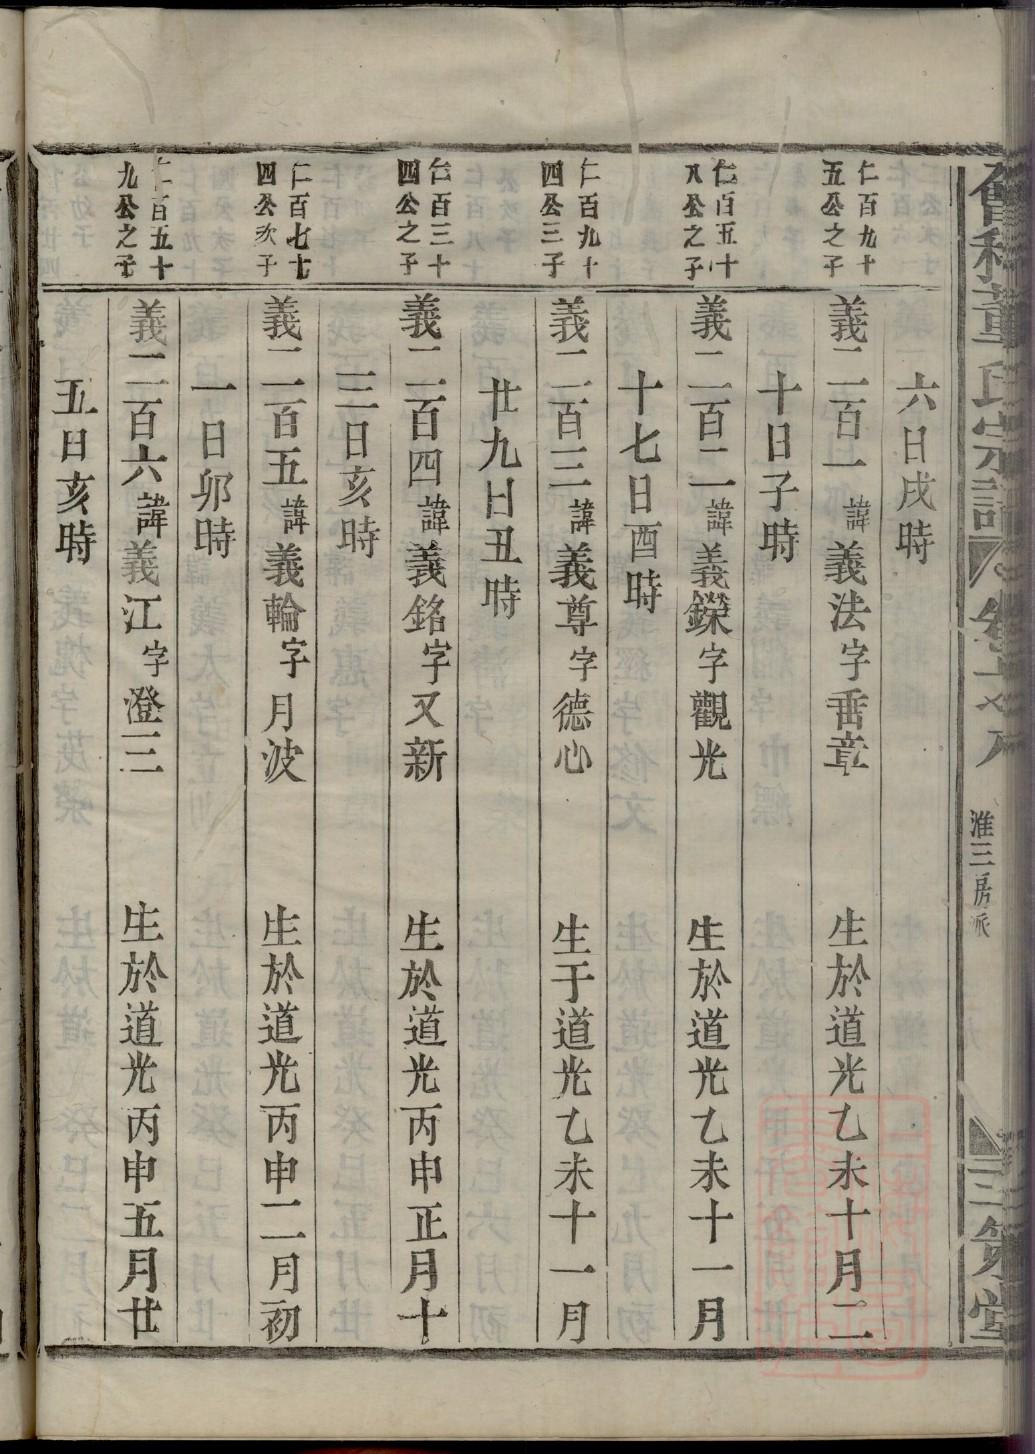 董氏宗譜
淮三房派
三策堂
六日戌時
仁百九十
五公之子
義二百一諱義法字垂章 生於道光乙未十月二
十日子時
仁百五十
八公之子
義二百二諱義鑅字觀光 生於道光乙未十一月
十七日酉時
仁百九十
四公三子
義二百三諱義尊字德心 生于道光乙未十一月
廿九日丑時
仁百三十
四公之子
義二百四諱義銘字又新 生於道光丙申正月十
三日亥時
仁百七七
四公次子
義二百五諱義輪字月波 生於道光丙申二月初
一日卯時
仁百五十
九公之子
義二百六諱義江字澄三 生於道光丙申五月廿
五日亥時